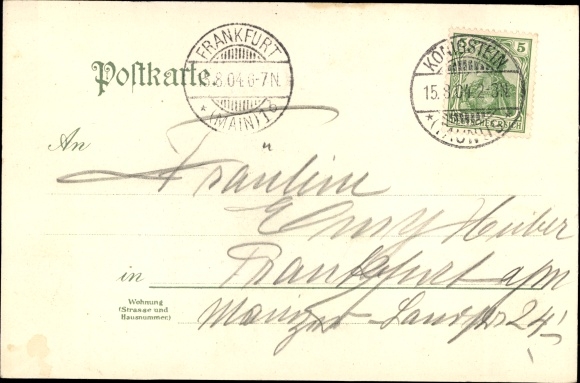 FRANKFURT
15.8.04.6-7N.
* (MAIN) 1 c
KÖNIGSTEIN
15.8.04.2-3N.
* (TAUNUS) *
5
Postkarte.
An
Fräulein
Emy Huber
in Frankfurt a/m
Wohnung
(Strasse und
Hausnummer)
Mainzer Landstr 24